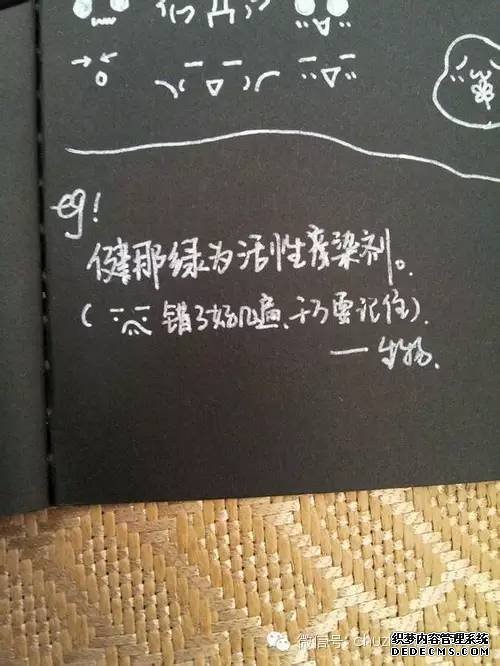 eg!
健那绿为活性废染剂。
(错了好几遍、千万要记住).
一生物.
微信号: chuz
织梦内容管理系统
DEDECMS.COM